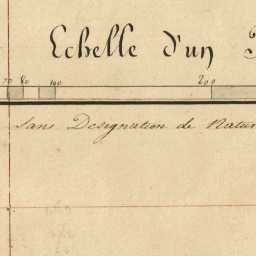 Echelle d'un
70 80 100 200
Sans Designation de Natur